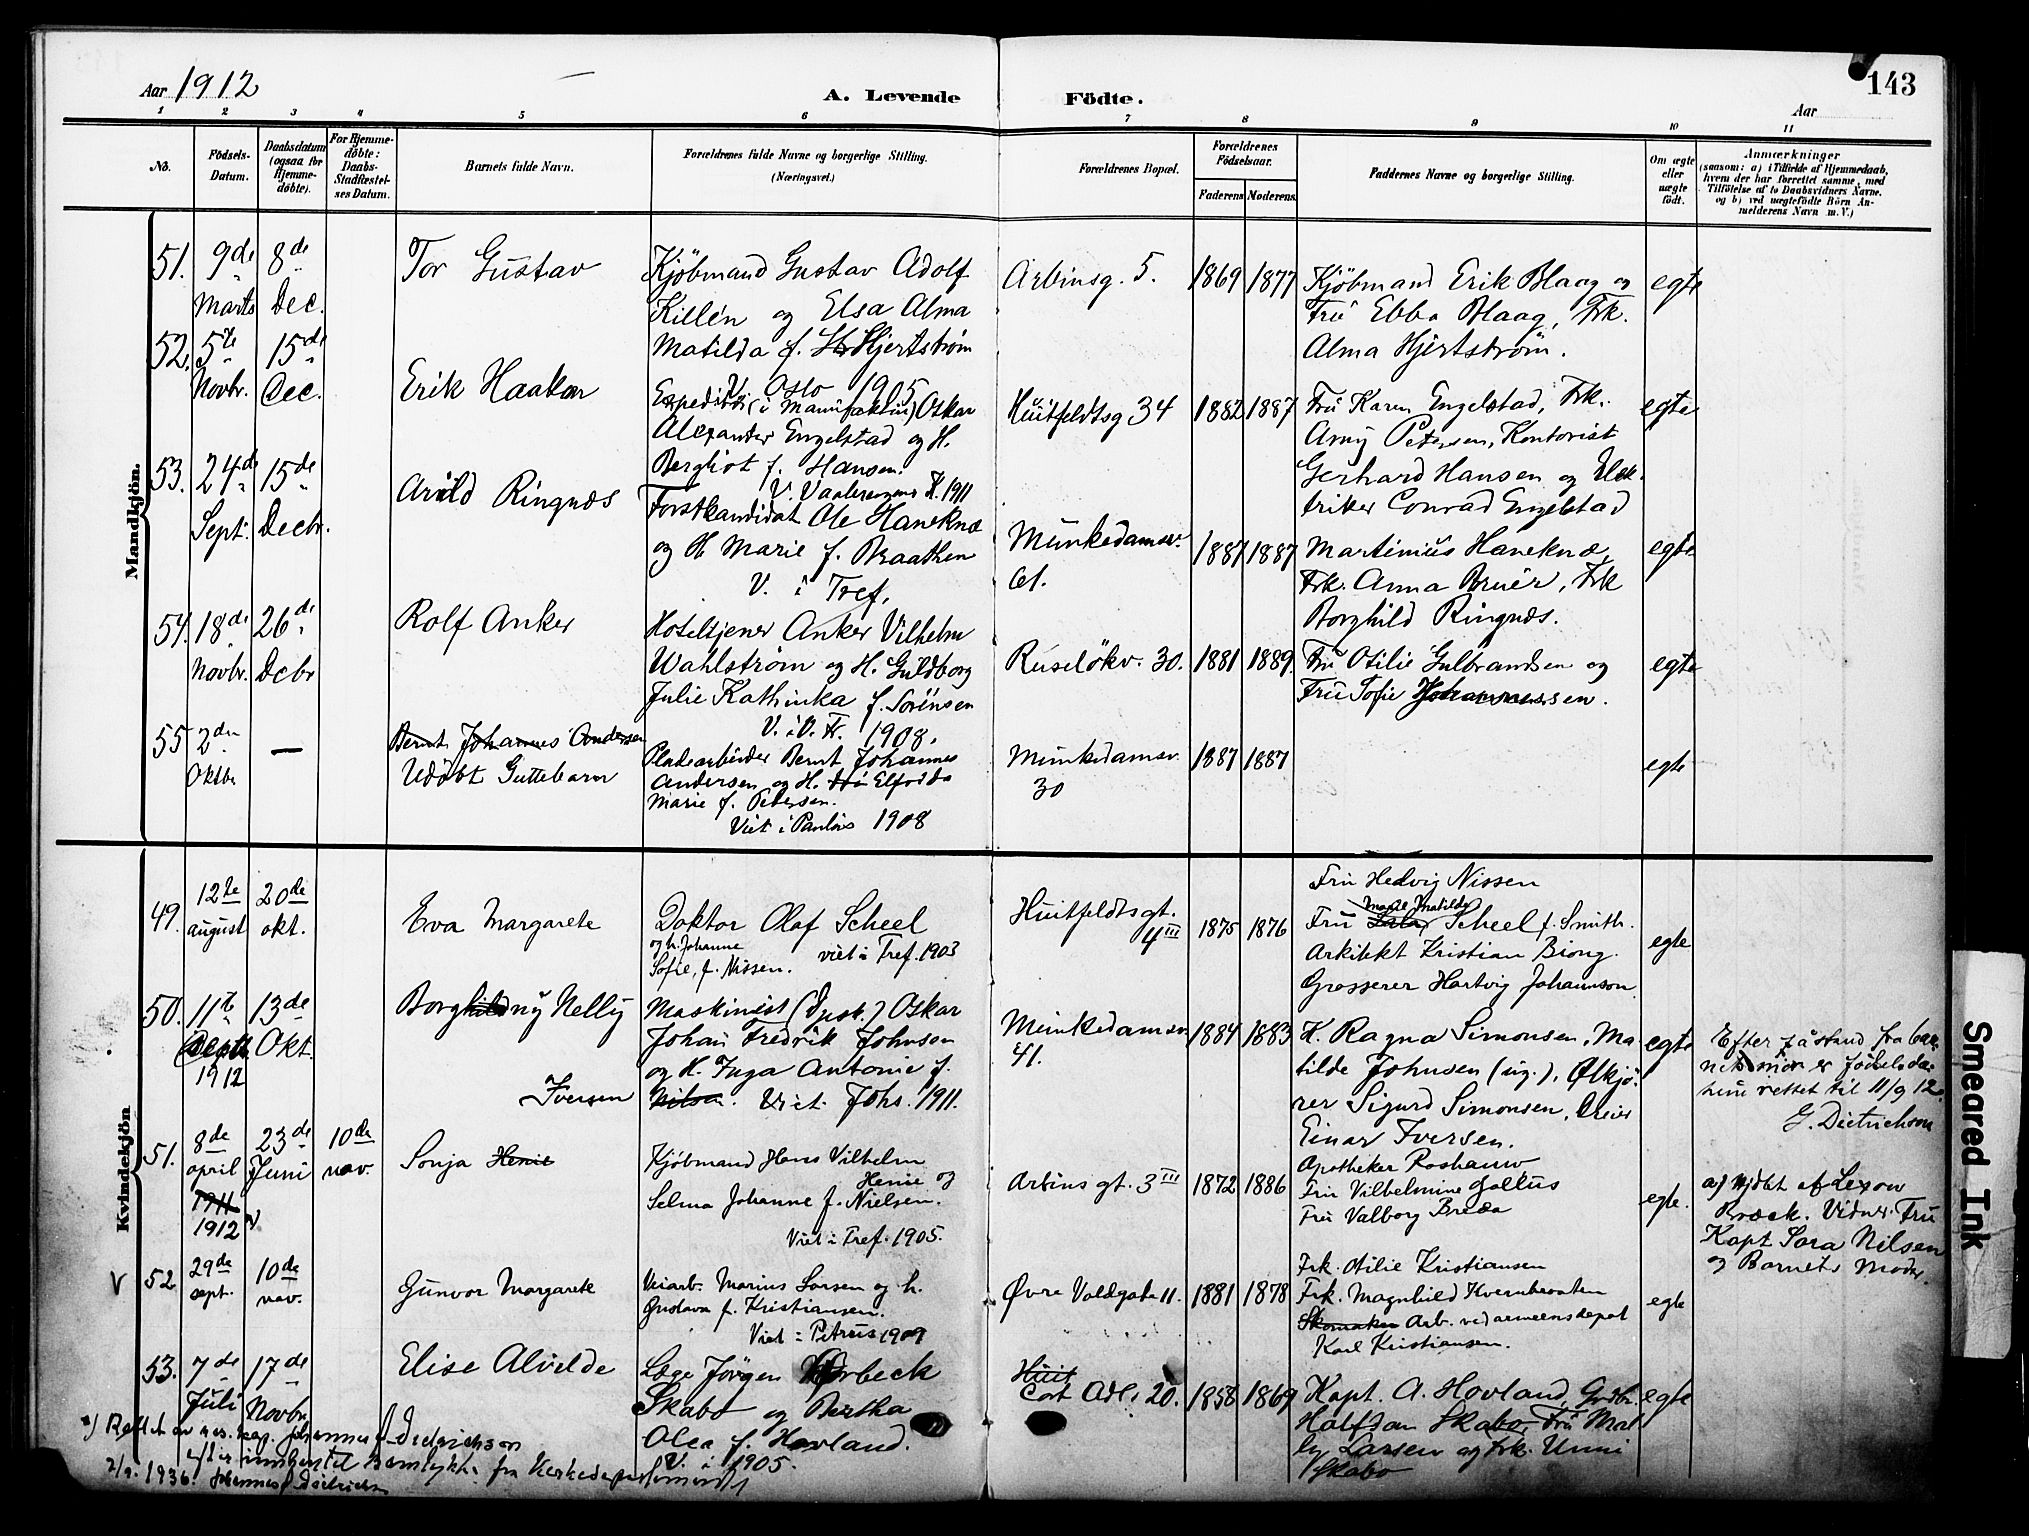 Aar 1912
A. Levende Födte.
Aar
143
1 2 3 4 5 6 7 8 9 10 11
No.
Födsels-Datum.
Daabsdatum (ogsaa for Hjemme-döbte).
For Hjemme-döbte: Daabs-Stadfæstel-ses Datum.
Barnets fulde Navn.
Forældrenes fulde Navne og borgerlige Stilling.
(Næringsvei.)
Forældrenes Bopæl.
Forældrenes Födselsaar.
Faderens Moderens
Faddernes Navne og borgerlige Stilling.
Om ægte eller uægte födt.
Anmærkninger
(saasom: a) i Tilfælde af Hjemmedaab,
hvem der har forrettet samme, med
Tilföielse af to Daabsvidners Navne.
og b) ved uægtefödte Börn An-
melderens Navn m. V.)
Mandkjön.
51. 9de Marts 8de Dec.
Tor Gustav
Kjöbmand Gustav Adolf
Killén og Elsa Alma
Matilda f. Hjertström
V. Oslo 1905
Arbinsg. 5. 1869 1877
Kjöbmand Erik Blaag og
Fru Ebba Blaag, Frk.
Alma Hjertström.
egte
52. 5te Novbr. 15de Dec.
Erik Haakon
Expeditör (i Manufaktur) Oskar
Alexander Engelstad og H.
Bergliot f. Hansen.
V. Vaalerengens K. 1911
Huitfeldtsg 34 1882 1887
Fru Karen Engelstad, Frk.
Arny Petersen, Kontorist
Gerhard Hansen og Elek-
triker Conrad Engelstad
egte
53. 24de Sept. 15de Decbr.
Arild Ringnæs
Forstkandidat Ole Haneknæ
og H. Marie f. Braathen
V. i Tref.
Munkedamsv. 61. 1887 1887
Martinius Haneknæ,
Frk. Anna Bruér, Frk
Borghild Ringnæs.
egte
54. 18de Novbr. 26de Dcbr
Rolf Anker
Hoteltjener Anker Vilhelm
Wahlström og H. Guldborg
Julie Kathinka f. Sörensen
V. i V. Fr. 1908.
Ruselökv. 30. 1881 1889.
Fru Otilie Gulbrandsen og
Fru Sofie Johannessen.
egte
55 2den Oktbr —
Bernt Johannes Andersen
Udöbt Guttebarn
Pladearbeider Bernt Johannes
Andersen og H. Elfrida
Marie f. Petersen.
Viet i Paulus 1908
Munkedamsv. 30 1887 1887
egte
Kvindekjön
49. 12te august 20de okt.
Eva Margarete
Doktor Olaf Scheel
og h. Johanne
Sofie, f. Nissen. viet i Tref. 1903
Huitfeldtsgt. 4III 1875 1876
Fru Hedvig Nissen
Marie Matilde
Fru Scheel f. Smith.
Arkitekt Kristian Biong.
Grosserer Hartvig Johannson
egte
50. 11te Septb. 1912 13de Okt.
Borghildny Nelly
Iversen
Maskinist (Dpsk.) Oskar
Johan Fredrik Johnsen
og H. Inga Antonie f.
Nilsen. Viet Johs. 1911.
Munkedamsv. 41. 1884 1883
H. Ragna Simonsen, Ma-
tilde Johnsen (ug.), Ølkjö-
rer Sigurd Simonsen, Meier
Einar Iversen.
egte
Efter påstand fra bar-
nets mor er födselsda-
tum rettet til 11/9 12.
G. Dietrichson
51. 8de april 1911 1912 a) 23de Juni 10de nov.
Sonja Henie
Kjöbmand Hans Vilhelm
Henie og
Selma Johanne f. Nielsen.
Viet i Tref. 1905.
Arbins gt. 3III 1872 1886
Apotheker Roshauw
Fru Vilhelmine Gallus
Fru Valborg Breda
egte.
a) Hjdbt af Lexow
Bræck. Vidner. Fru
Kapt Sara Nilsen
og Barnets Moder.
V 52 29de sept. 10de nov.
Gunvor Margarete
Veiarb. Marius Larsen og h.
Gustava f. Kristiansen.
Viet i Petrus 1909
Øvre Voldgate 11. 1881 1878
Frk. Otilie Kristiansen
Frk. Magnhild Kvernbraaten
Skomaker Arb. ved armeens depot
Karl Kristiansen.
egte
53. 7de Juli 17de Novbr
Elise Alvilde
Læge Jörgen Vörbeck
Skabo og Bertha
Olea f. Hovland.
V. i 1905.
Huit
Cort Adl. 20. 1858 1869
Kapt. A. Hovland, Grdbr.
Halfdan Skabo, Fru Mal-
ly Larsen og Frk. Unni
Skabo
egte
a) Rettet av res. kap. Johannes Dietrichson
efter innhentet Samtykke fra Kirkedepartementet
2/9. 1936. Johannes Dietrichson
Smeared Ink